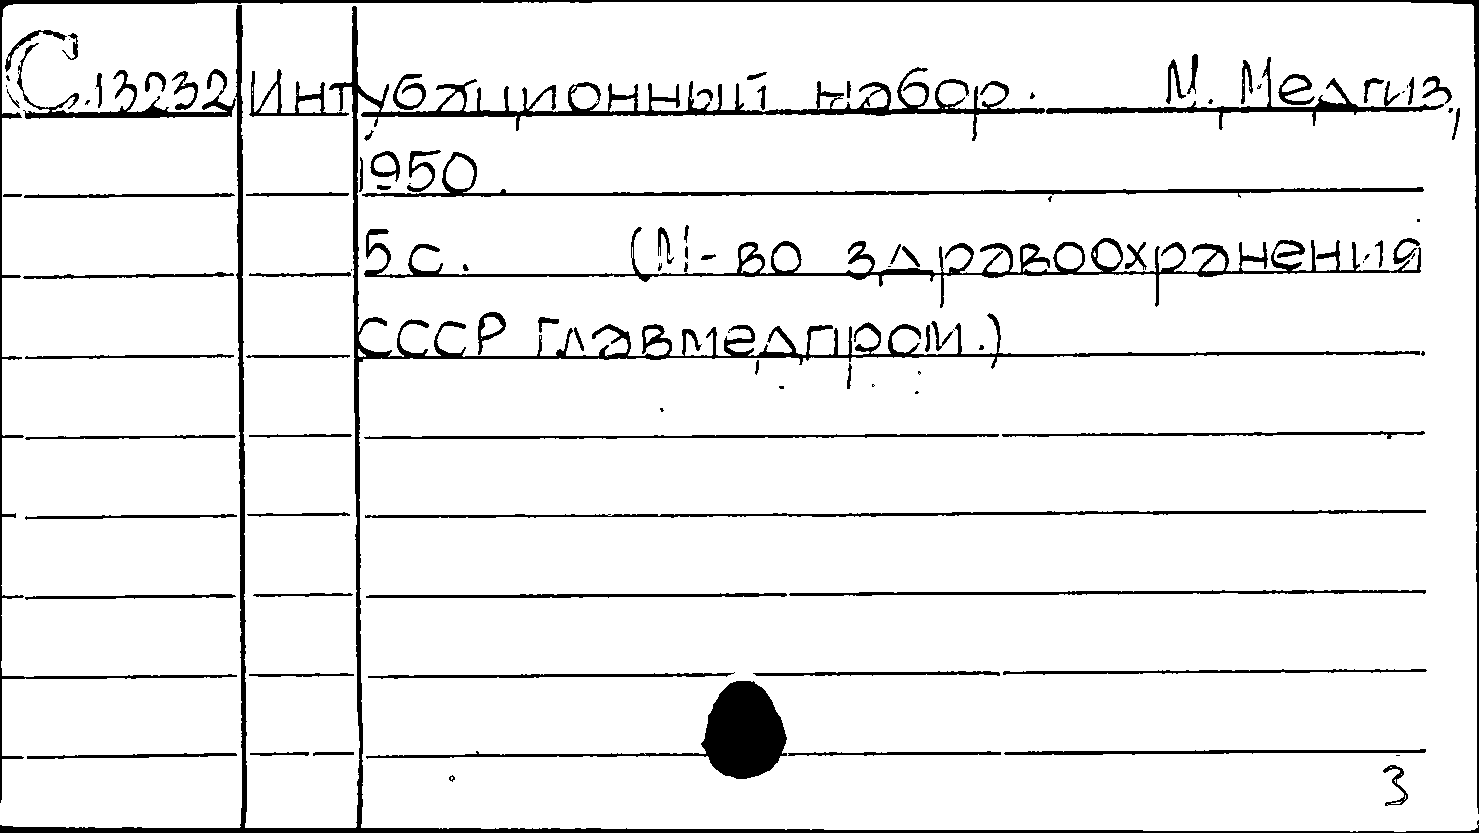 С.13232 Интубационный набор. М. Медгиз,
1950.
5 с. (М-во здравоохранения
СССР Главмедпром.)
3